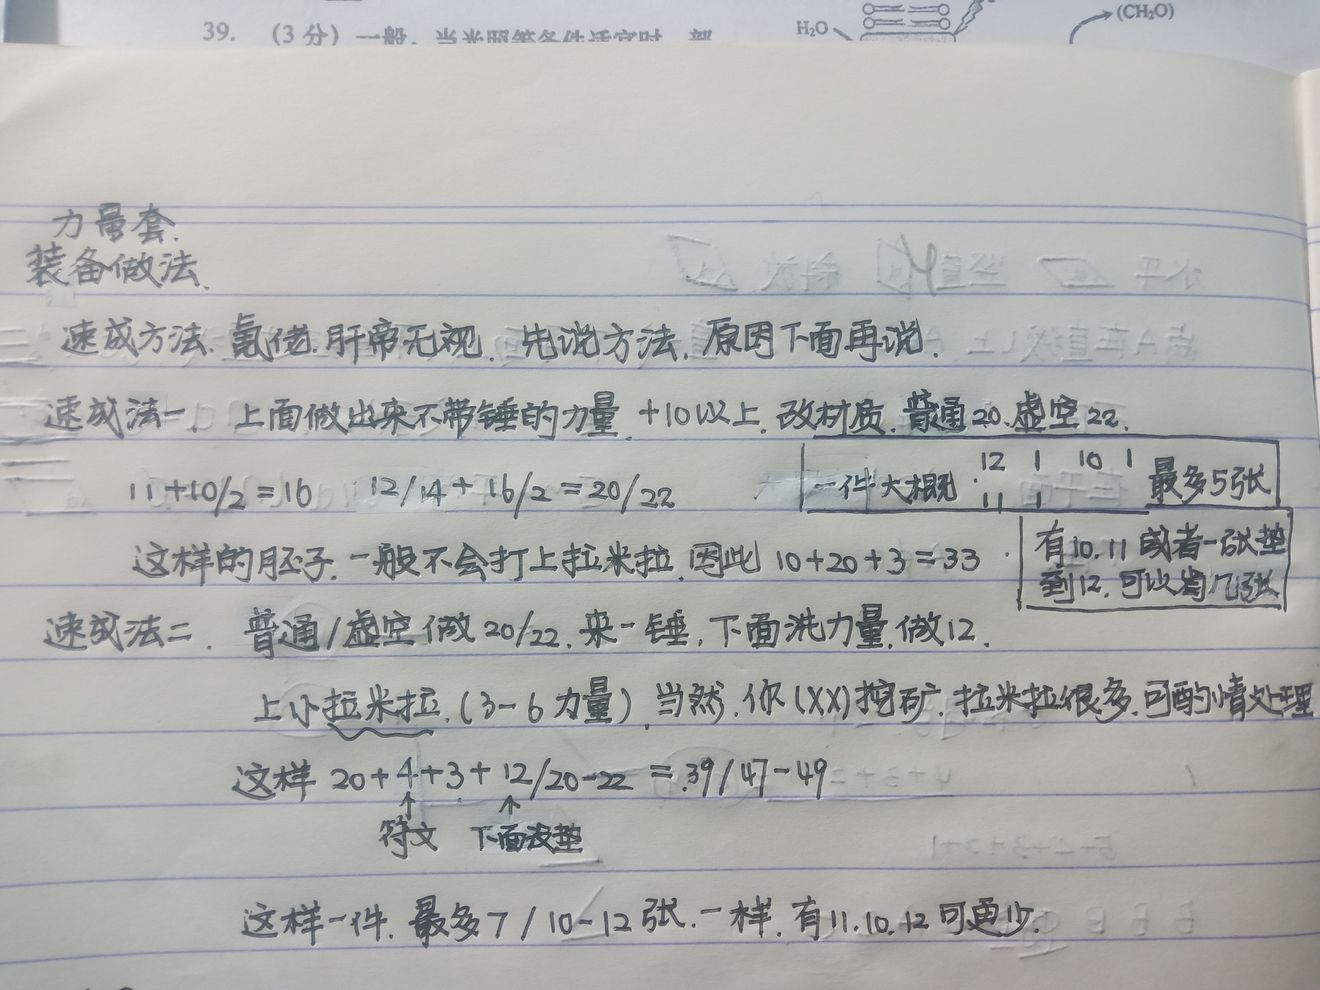 39. (3分) 一般，当光照等条件适宜时，部
H₂O
(CH₂O)
力量套.
装备做法.
速成方法. 氪佬.肝帝无视. 先说方法. 原因下面再说.
速成法一. 上面做出来不带锤的力量. +10以上. 改材质. 普通20.虚空22.
11+10/2=16 12/14+16/2=20/22
一件大概. 12 1 10 1 最多5张
11 1
这样的胚子.一般不会打上拉米拉.因此 10+20+3=33.
有10.11或者一张垫
到12.可以省几张
速成法二. 普通/虚空做20/22.来一锤.下面洗力量.做12.
上小拉米拉.(3-6力量).当然.你(XX)挖矿.拉米拉很多.可酌情处理
这样 20+4+3+12/20-22=39/47-49
↑符文 ↑下面没垫
这样一件.最多7/10-12张.一样.有11.10.12可更少.